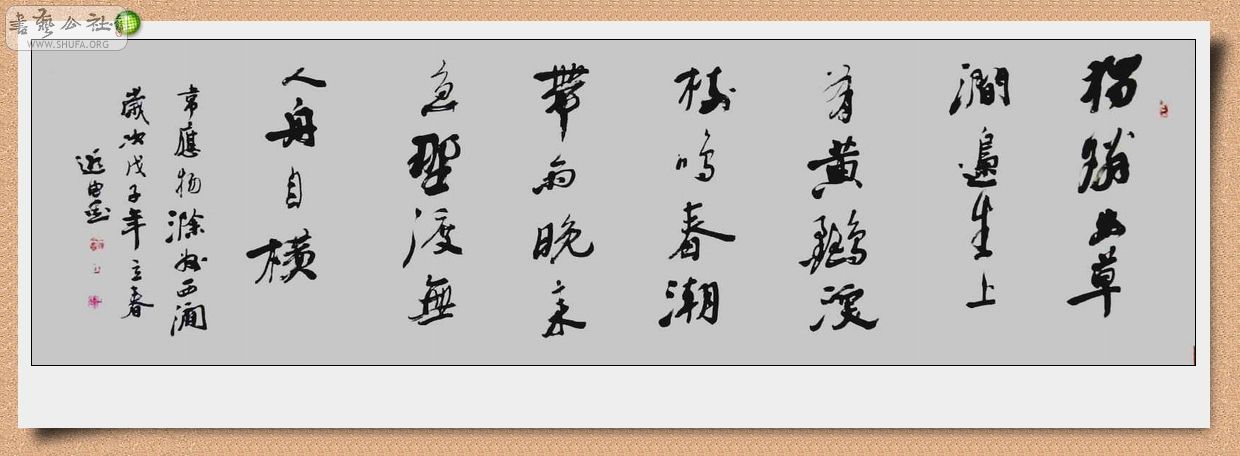 書藝公社
WWW.SHUFA.ORG
獨憐幽草
澗邊生上
有黃鸝深
樹鳴春潮
帶雨晚來
急野渡無
人舟自橫
韋應物滁州西澗
歲次戊子年立春